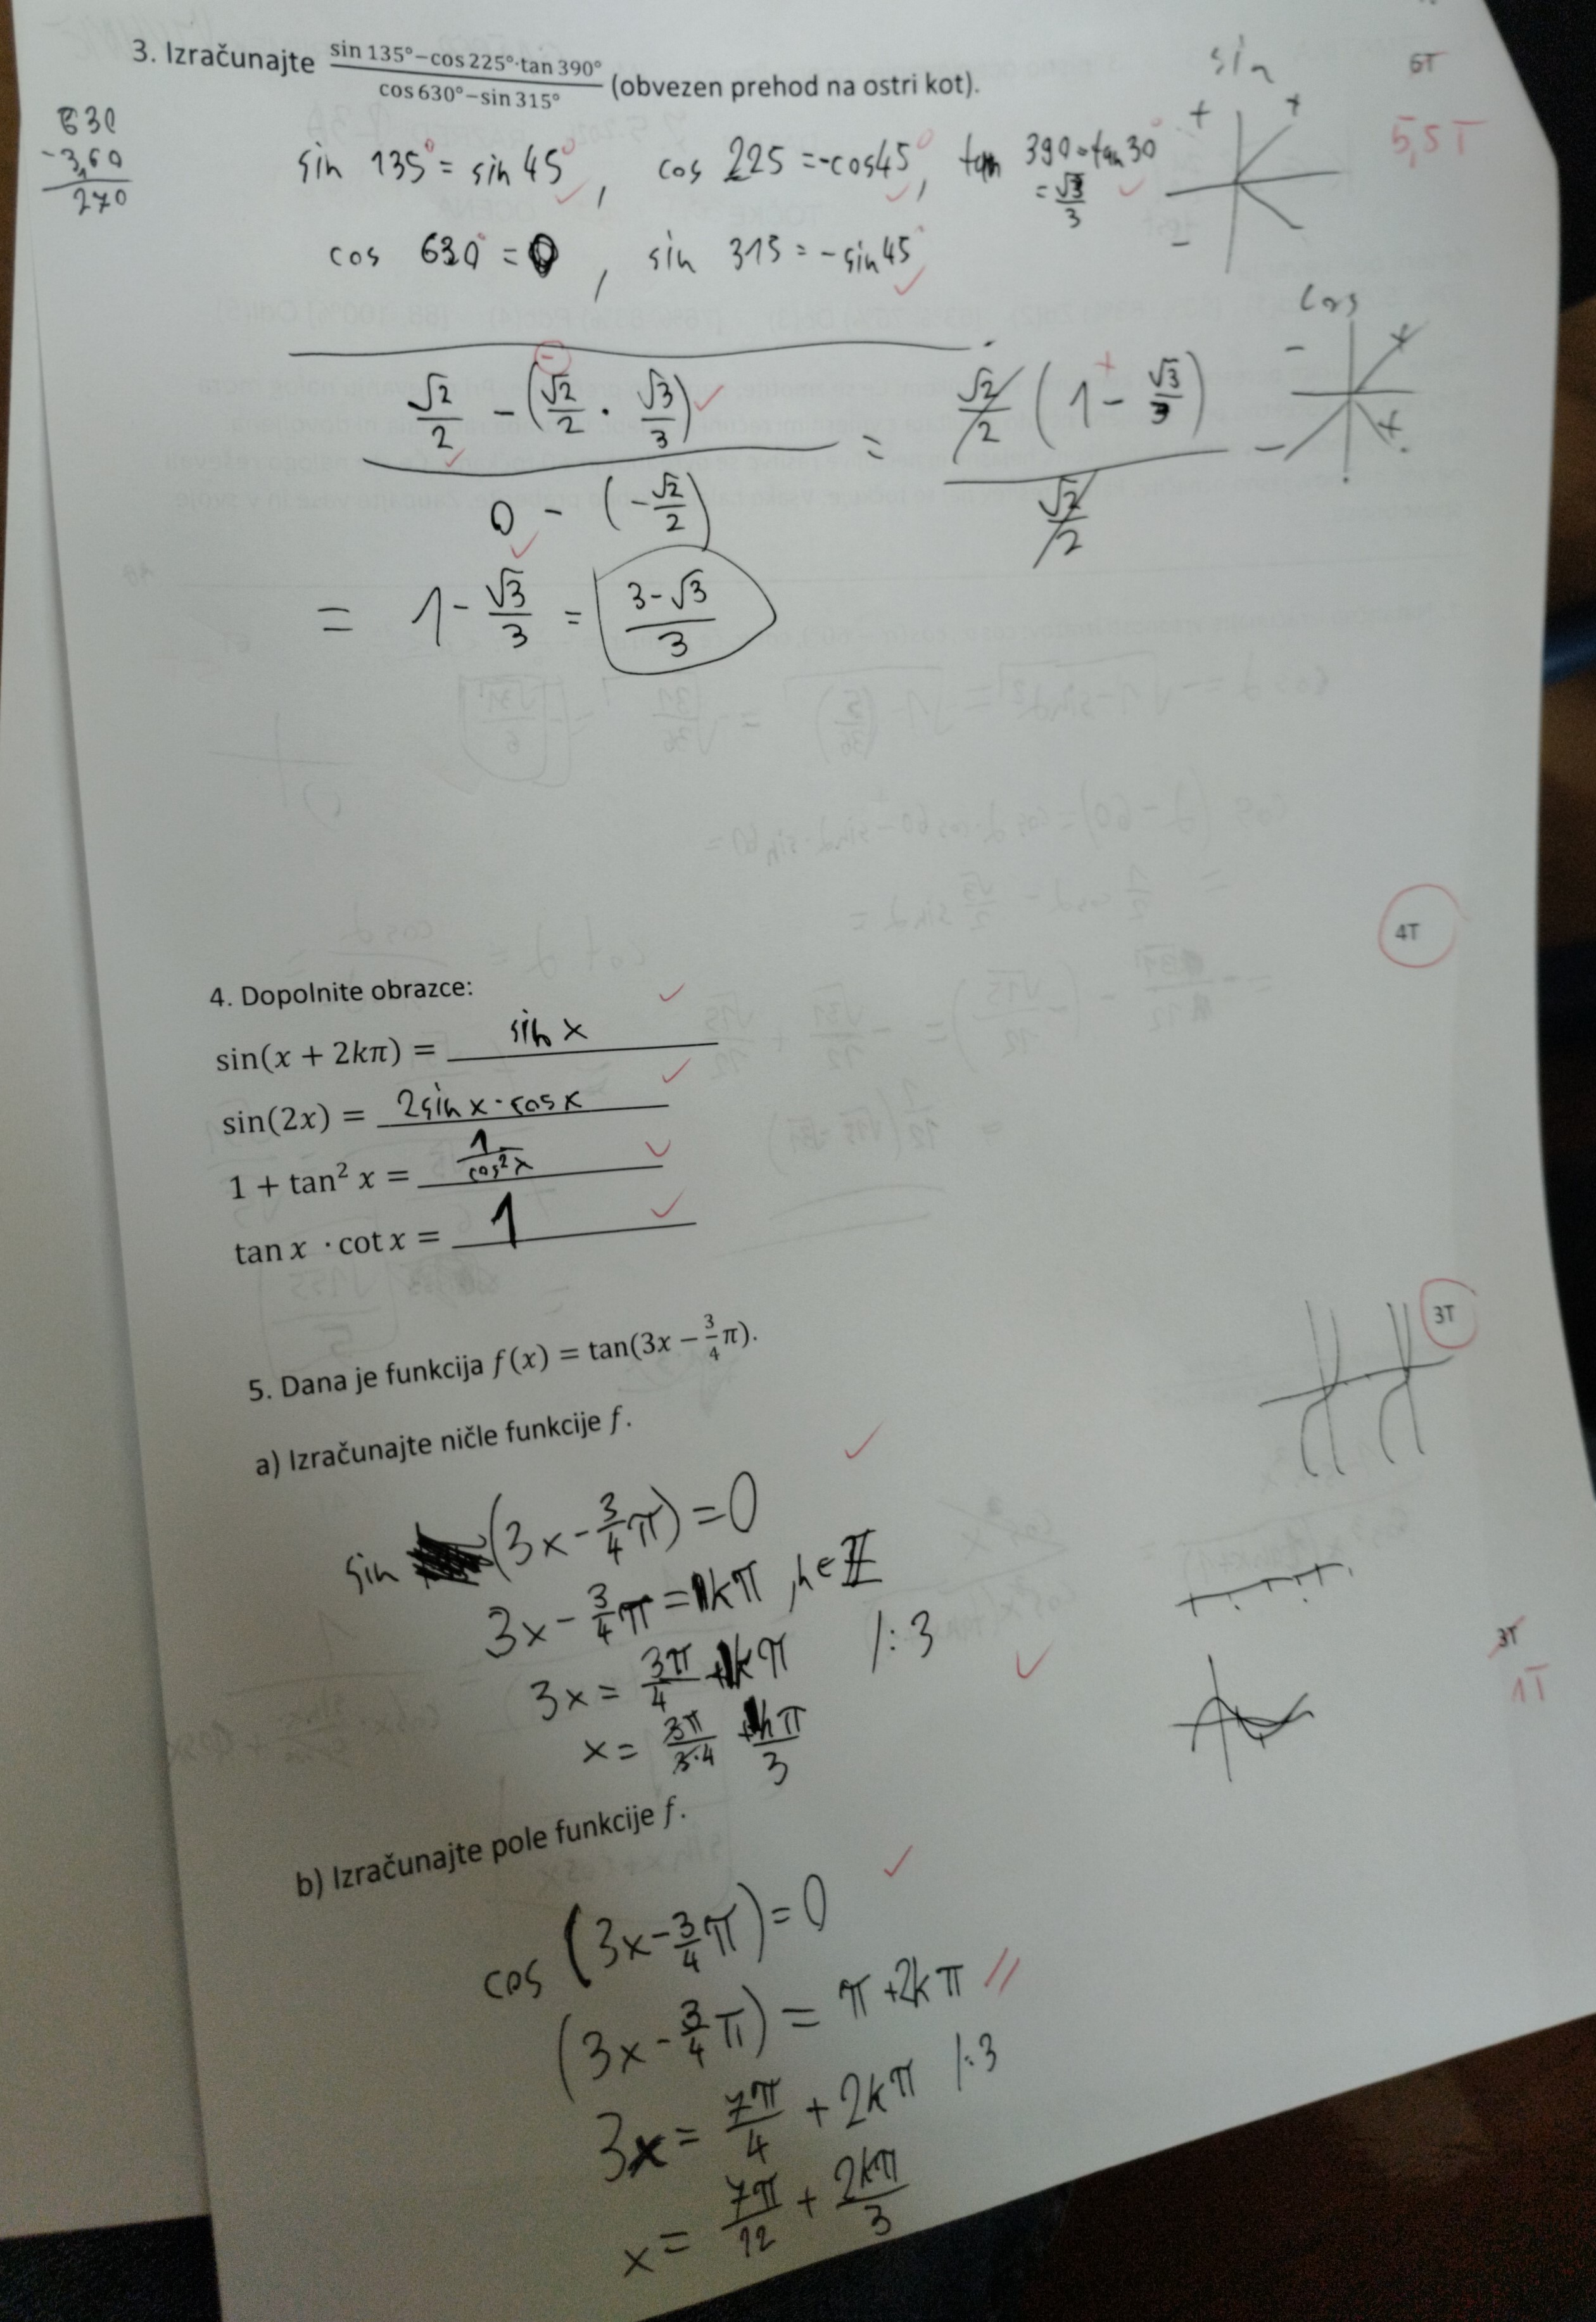 3. Izračunajte (sin 135°−cos 225°·tan 390°)/(cos 630°−sin 315°) (obvezen prehod na ostri kot).
6T
5,5T
630
-360
270
sin 135° = sin 45°, cos 225 = -cos45°, tan 390 = tan 30° = √3/3
cos 630° = 0, sin 315 = -sin 45°
sin
+ +
-
cos
- +
- +
(√2/2 - (-√2/2 · √3/3))/(0 - (-√2/2)) = (√2/2 (1 - √3/3))/(√2/2)
+
= 1 - √3/3 = (3-√3)/3
4T
4. Dopolnite obrazce:
sin(x + 2kπ) = sin x
sin(2x) = 2sin x · cos x
1 + tan² x = 1/cos²x
tan x · cot x = 1
3T
5. Dana je funkcija f(x) = tan(3x − 3/4 π).
a) Izračunajte ničle funkcije f.
sin (3x - 3/4 π) = 0
3x - 3/4 π = kπ, k∈ℤ
3x = 3π/4 + kπ /:3
x = 3π/3·4 + kπ/3
3T
1T
b) Izračunajte pole funkcije f.
cos (3x - 3/4 π) = 0
(3x - 3/4 π) = π + 2kπ
3x = 7π/4 + 2kπ /:3
x = 7π/12 + 2kπ/3